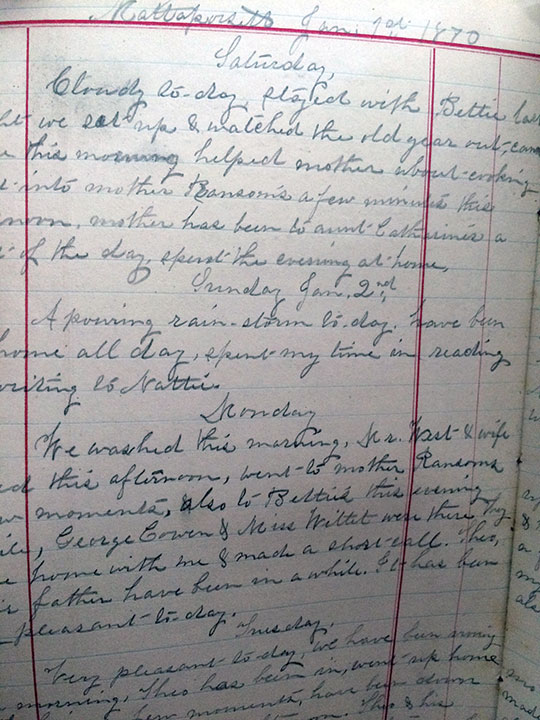 Mattapoisett Jan. 1st 1870
Saturday,
Cloudy to-day, stayed with Bettie last
ht we set up & watched the old year out, came
e this morning helped mother about cooking
into mother Ransom's a few minutes this
noon, mother has been to aunt Catharine's a
of the day, spent the evening at home,
Sunday Jan. 2nd
A pouring rain-storm to-day. have been
home all day, spent my time in reading
writing to Nattie.
Monday
We washed this morning, Mr. West & wife
ed this afternoon, went to mother Ransoms
w moments, also to Bettie's this evening
ile, George Cowen & Miss Wiltet were there They
e home with me & made a short call. Theo,
father have been in a while. It has been
pleasant to-day.
Tuesday,
Very pleasant to-day, we have been
morning, Theo has been in, went up home
few moments, have been down
Theo & his